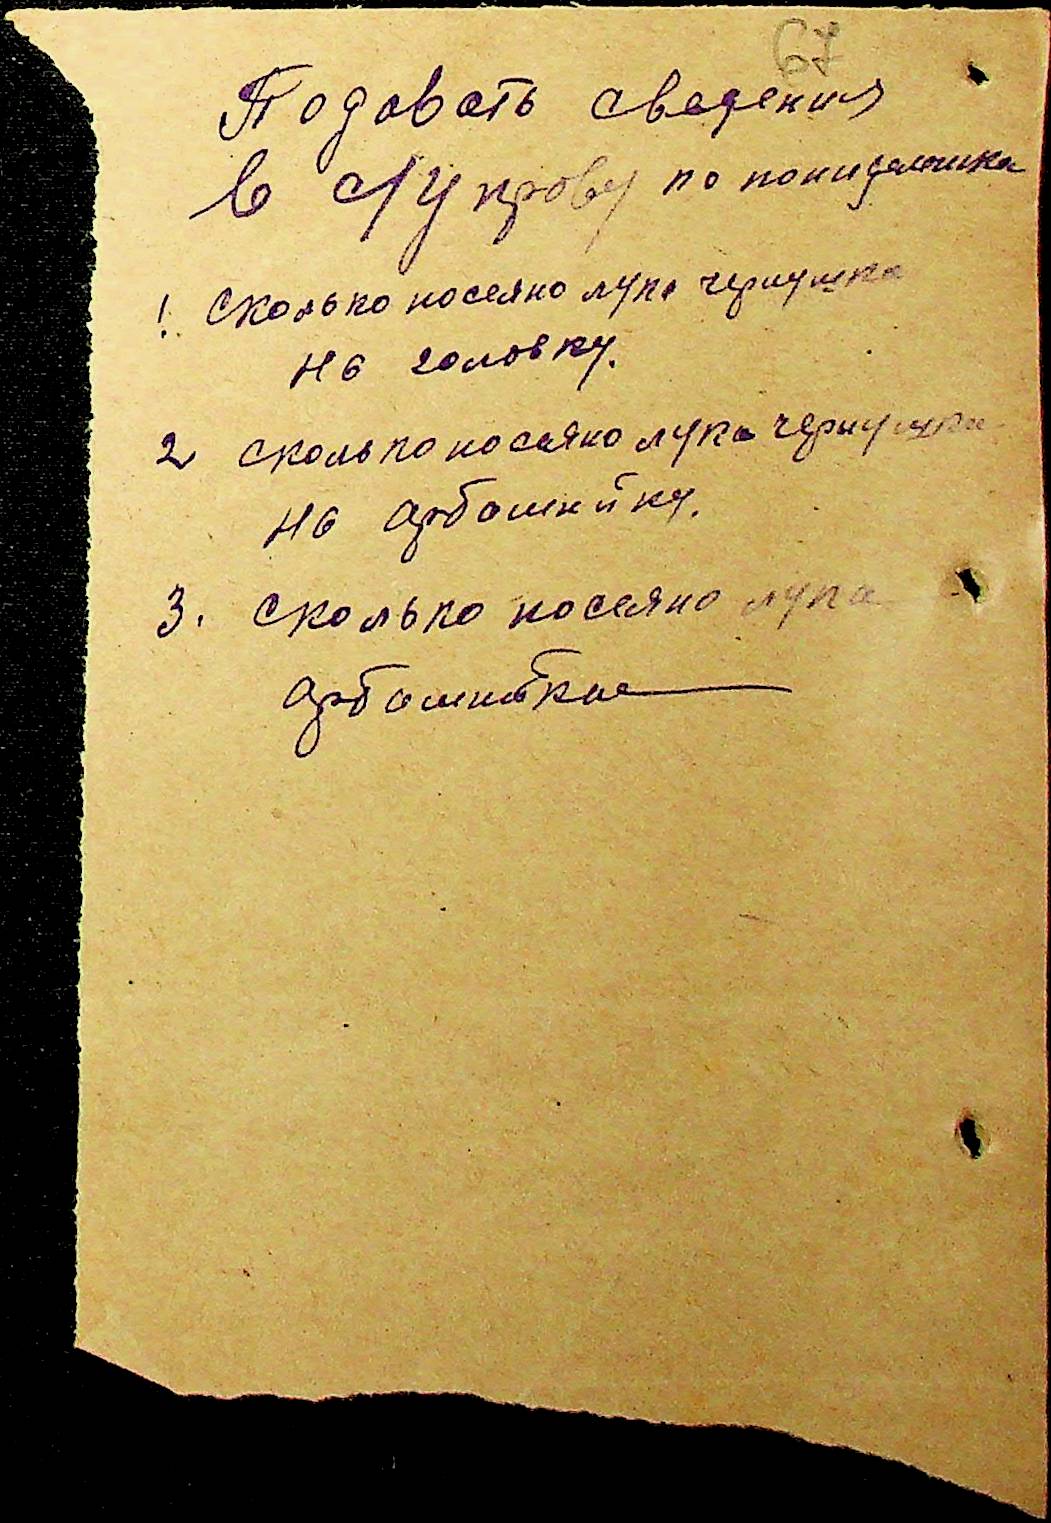 67
Подовать сведения
в Лупрову по понидельника
1. Сколько посеяно лука чернушка
на головку.
2 Сколько посеяно лука чернушка
на арбашейку.
3. Сколько посеяно лука